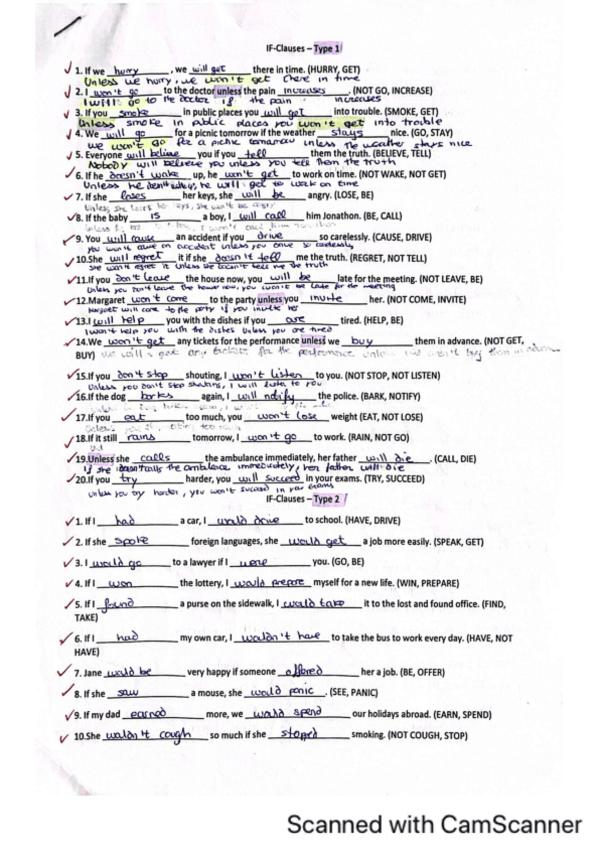 IF-Clauses – Type 1
✓ 1. If we hurry, we will get there in time. (HURRY, GET)
Unless we hurry, we won't get there in time
✓ 2. I won't go to the doctor unless the pain increases. (NOT GO, INCREASE)
I will go to the doctor if the pain increases
✓ 3. If you smoke in public places you will get into trouble. (SMOKE, GET)
Unless smoke in public places you won't get into trouble
✓ 4. We will go for a picnic tomorrow if the weather stays nice. (GO, STAY)
we won't go for a picnic tomorrow unless the weather stays nice
✓ 5. Everyone will believe you if you tell them the truth. (BELIEVE, TELL)
Nobody will believe you unless you tell them the truth
✓ 6. If he doesn't wake up, he won't get to work on time. (NOT WAKE, NOT GET)
Unless he will get to work on time
✓ 7. If she loses her keys, she will be angry. (LOSE, BE)
Unless she keys, she won't be angry
✓ 8. If the baby is a boy, I will call him Jonathon. (BE, CALL)
✓ 9. You will cause an accident if you drive so carelessly. (CAUSE, DRIVE)
you won't cause an accident unless you drive so carelessly
✓ 10.She will regret it if she doesn't tell me the truth. (REGRET, NOT TELL)
She won't regret it unless she doesn't tell me the truth
✓ 11.If you don't leave the house now, you will be late for the meeting. (NOT LEAVE, BE)
Unless you don't leave the house now, you won't be late for the meeting
✓ 12.Margaret won't come to the party unless you invite her. (NOT COME, INVITE)
Margaret will come to the party if you invite her
✓ 13.I will help you with the dishes if you are tired. (HELP, BE)
I won't help you with the dishes unless you are tired
✓ 14.We won't get any tickets for the performance unless we buy them in advance. (NOT GET,
BUY) we will get any tickets for the performance unless we aren't buy them in advance
✓ 15.If you don't stop shouting, I won't listen to you. (NOT STOP, NOT LISTEN)
Unless you don't stop shouting, I will listen to you
✓ 16.If the dog barks again, I will notify the police. (BARK, NOTIFY)
✓ 17.If you eat too much, you won't lose weight (EAT, NOT LOSE)
Unless
✓ 18.If it still rains tomorrow, I won't go to work. (RAIN, NOT GO)
✓ 19.Unless she calls the ambulance immediately, her father will die. (CALL, DIE)
If she doesn't calls the ambulance immediately, her father will die
✓ 20.If you try harder, you will succeed in your exams. (TRY, SUCCEED)
unless you try harder, you won't succeed in your exams
IF-Clauses – Type 2
✓ 1. If I had a car, I would drive to school. (HAVE, DRIVE)
✓ 2. If she spoke foreign languages, she would get a job more easily. (SPEAK, GET)
✓ 3. I would go to a lawyer if I were you. (GO, BE)
✓ 4. If I won the lottery, I would prepare myself for a new life. (WIN, PREPARE)
✓ 5. If I found a purse on the sidewalk, I would take it to the lost and found office. (FIND,
TAKE)
✓ 6. If I had my own car, I wouldn't have to take the bus to work every day. (HAVE, NOT
HAVE)
✓ 7. Jane would be very happy if someone offered her a job. (BE, OFFER)
✓ 8. If she saw a mouse, she would panic. (SEE, PANIC)
✓ 9. If my dad earned more, we would spend our holidays abroad. (EARN, SPEND)
✓ 10.She wouldn't cough so much if she stoped smoking. (NOT COUGH, STOP)
Scanned with CamScanner